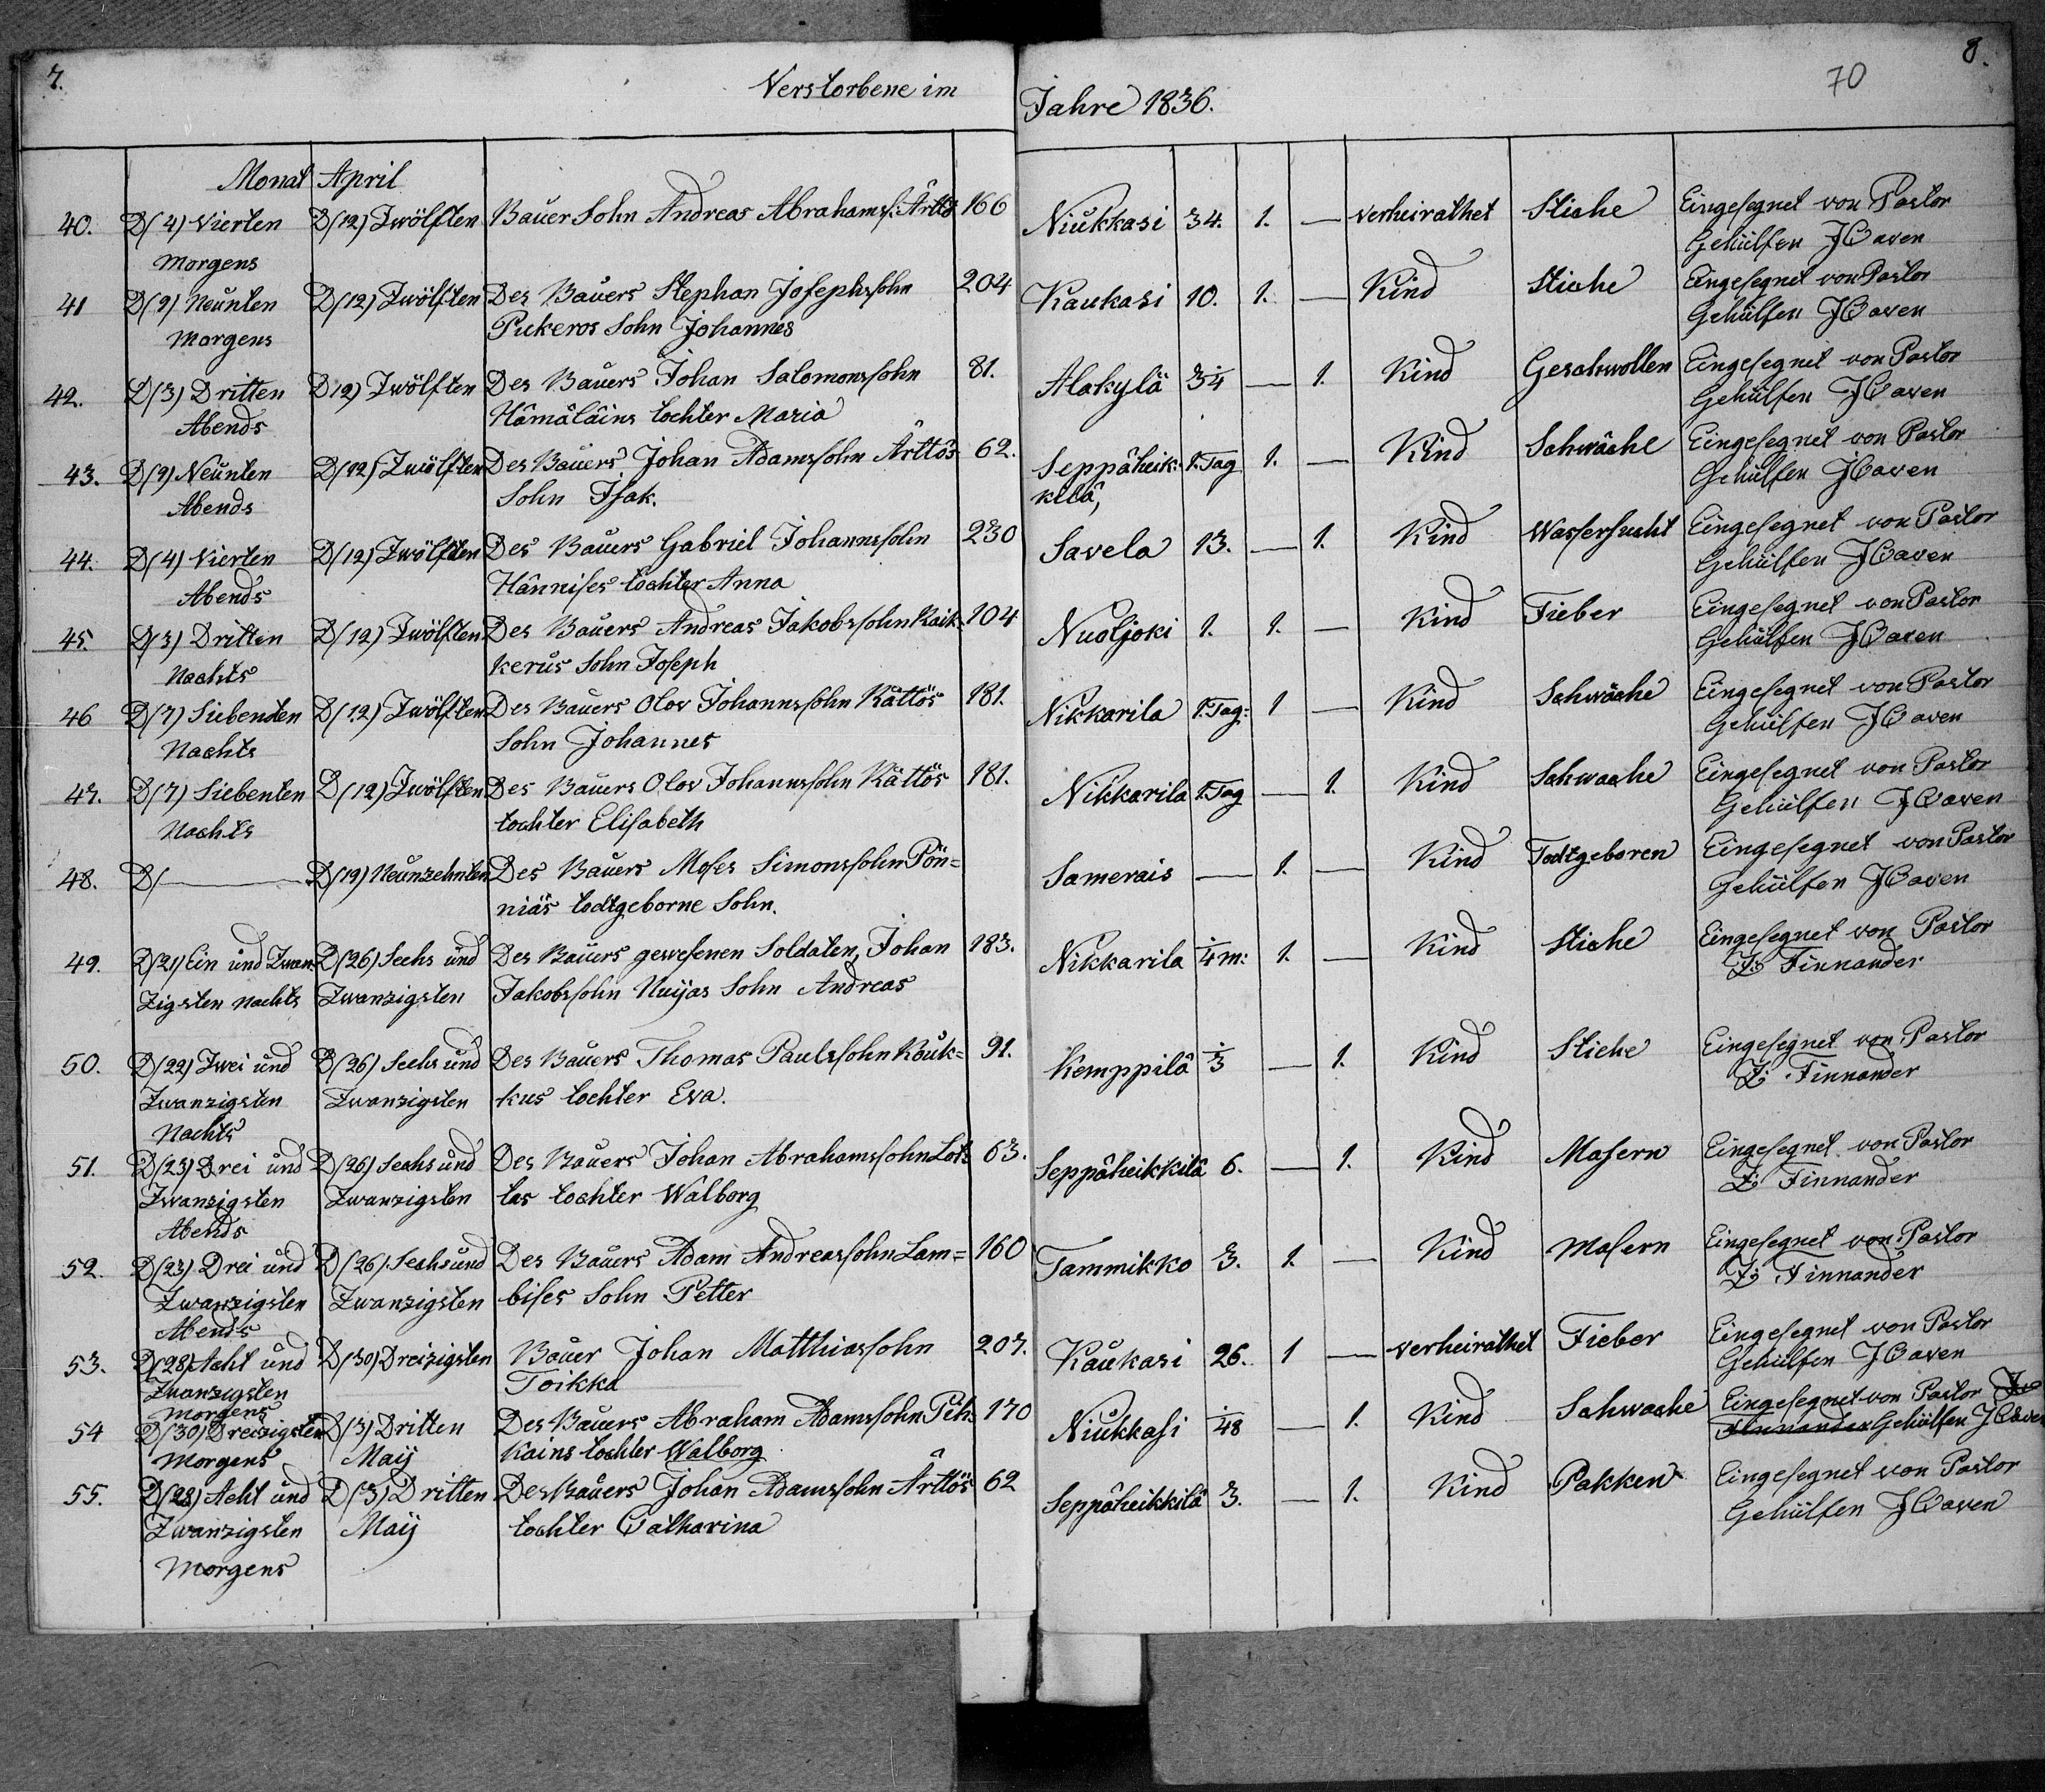 7.
Verstorbene im
Jahre 1836.
70
8.
Monat April
40. D(4) Vierten D(12) Zwölften Bauer Sohn Andreas Abrahamss: Ärttö 166 Niukkasi 34. 1. — verheirathet Stiche Eingesegnet von Pastor
Morgens Gehülfen J Caven
41 D(9) Neunten D(12) Zwölften Des Bauers Stephan Josephssohn 204 Kaukasi 10. 1. — Kind Stiche Eingesegnet von Pastor
Morgens Pukeros Sohn Johannes Gehülfen J Caven
42. D(3) Dritten D(12) Zwölften Des Bauers Johan Salomonssohn 81. Alakylä 3/4 — 1. Kind Geschwollen Eingesegnet von Pastor
Abends Hämäläins tochter Maria Gehülfen J Caven
43. D(9) Neunten D(12) Zwölften Des Bauers Johan Adamssohn Ärttös 62. Seppäheik- 1. Tag 1. — Kind Schwäche Eingesegnet von Pastor
Abends Sohn Isak. kilä, Gehülfen J Caven
44. D(4) Vierten D(12) Zwölften Des Bauers Gabriel Johannssohn 230 Savela 13. — 1. Kind Wassersucht Eingesegnet von Pastor
Abends Hännises tochter Anna Gehülfen J Caven
45. D(3) Dritten D(12) Zwölften Des Bauers Andreas Jakobssohn Kaik- 104 Nuoljoki 1. 1. — Kind Fieber Eingesegnet von Pastor
Nachts kerus Sohn Joseph Gehülfen J Caven
46 D(7) Siebenden D(12) Zwölften Des Bauers Olov Johannssohn Kättös 181. Nikkarila 1. Tag: 1 — Kind Schwäche Eingesegnet von Pastor
Nachts Sohn Johannes Gehülfen J Caven
47. D(7) Siebenten D(12) Zwölften Des Bauers Olov Johannssohn Kättös 181. Nikkarila 1. Tag — 1. Kind Schwache Eingesegnet von Pastor
Nachts tochter Elisabeth Gehülfen J Caven
48. D(— D(19) Neunzehnten Des Bauers Moses Simonssohn Pön= Samerais — 1. — Kind Todtgeboren Eingesegnet von Pastor
niäs todtgeborne Sohn. Gehülfen J Caven
49. D(21) Ein und Zwan- D(26) Sechs und Des Bauers gewesenen Soldaten, Johan 183. Nikkarila 1/4 m: 1. — Kind Stiche Eingesegnet von Pastor
zigsten Nachts Zwanzigsten Jakobssohn Nuijas Sohn Andreas Z: Finnander
50. D(22) Zwei und D(26) Sechs und Des Bauers Thomas Paulssohn Kauk= 91. Kemppilä 1/3 — 1. Kind Stiche Eingesegnet von Pastor
Zwanzigsten Zwanzigsten kus tochter Eva. Z: Finnander
Nachts
51. D(23) Drei und D(26) Sechs und Des Bauers Johan Abrahamssohn Lot- 63. Seppäheikkilä 6. — 1. Kind Masern Eingesegnet von Pastor
Zwanzigsten Zwanzigsten tas tochter Walborg Z: Finnander
Abends
52. D(23) Drei und D(26) Sechs und Des Bauers Adam Andreassohn Lam= 160 Tammikko 3. 1. — Kind Masern Eingesegnet von Pastor
Zwanzigsten Zwanzigsten bises Sohn Petter Z: Finnander
Abends
53. D(28) Acht und D(30) Dreizigsten Bauer Johan Matthiassohn 207. Kaukasi 26. 1 — verheirathet Fieber Eingesegnet von Pastor
Zwanzigsten Toikka Gehülfen J Caven
Morgens
54 D(30) Dreizigsten D(3) Dritten Des Bauers Abraham Adamssohn Peh- 170 Niukkasi 1/48 — 1. Kind Schwache Eingesegnet von Pastor
Morgens Maij kains tochter Walborg Finnander Gehülfen J Caven
55. D(28) Acht und D(3) Dritten Des Bauers Johan Adamssohn Ärttös 62 Seppäheikkilä 3. — 1. Kind Pakken Eingesegnet von Pastor
Zwanzigsten Maij tochter Catharina Gehülfen J Caven
Morgens